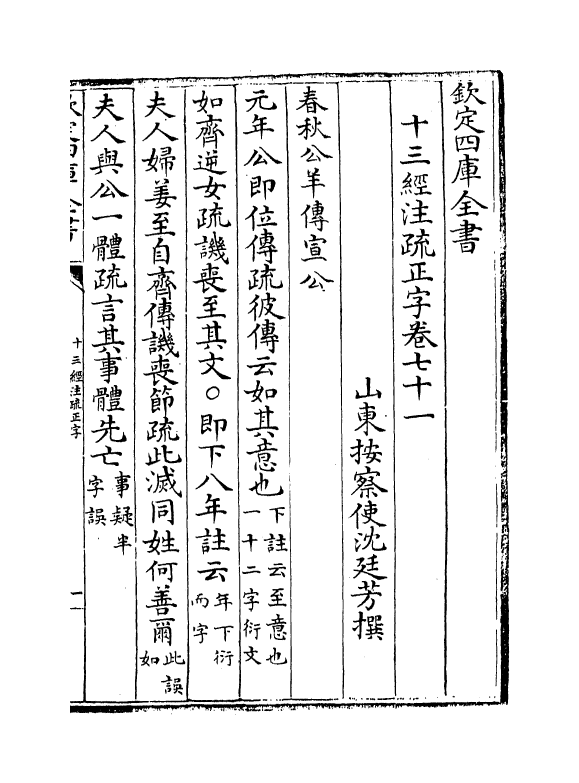 欽定四庫全書
十三經注疏正字卷七十一
山東按察使沈廷芳撰
春秋公羊傳宣公
元年公即位傳疏彼傳云如其意也下註云至意也一十二字衍文
如齊逆女疏譏喪至其文○即下八年註云年下衍而字
夫人婦姜至自齊傳譏喪節疏此滅同姓何善爾此誤如
夫人與公一體疏言其事體先亡事疑半字誤
欽定四庫全書
十三經注疏正字
一